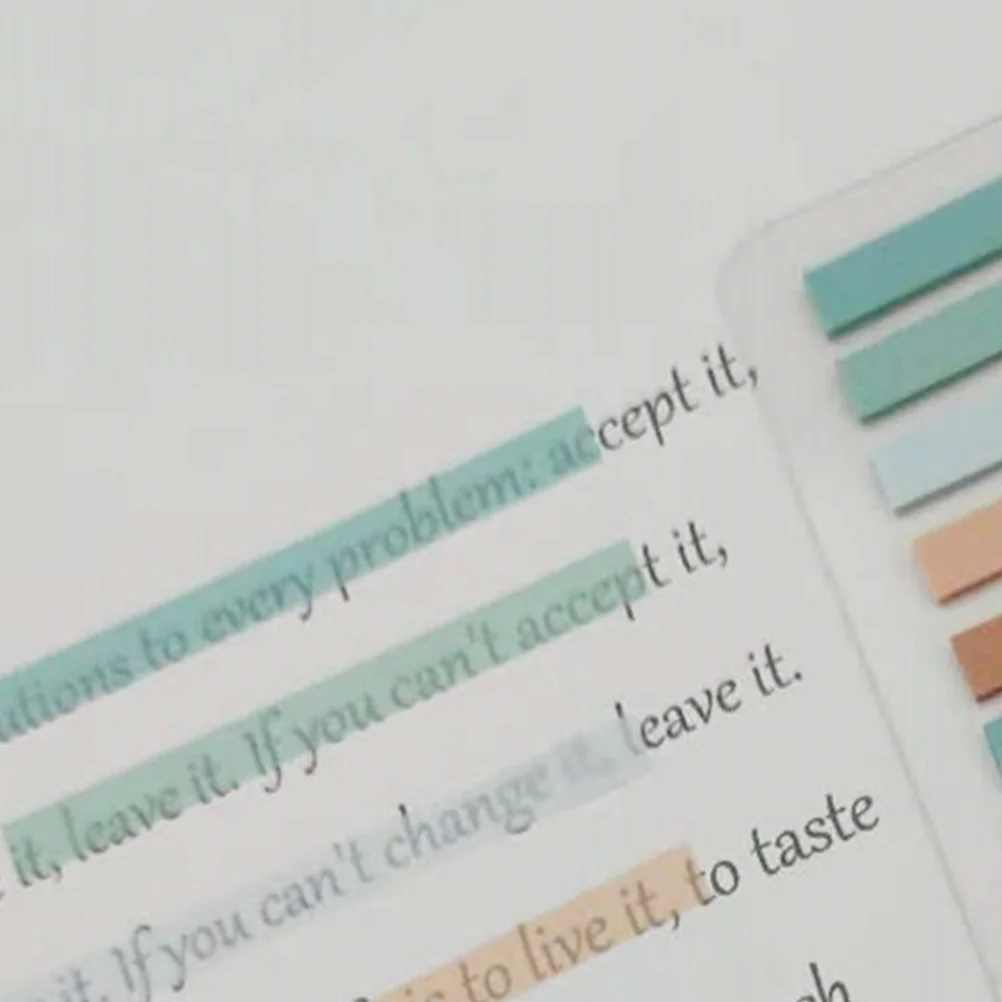 utions to every problem: accept it,
it, leave it. If you can't accept it,
it. If you can't change it, leave it.
is to live it, to taste